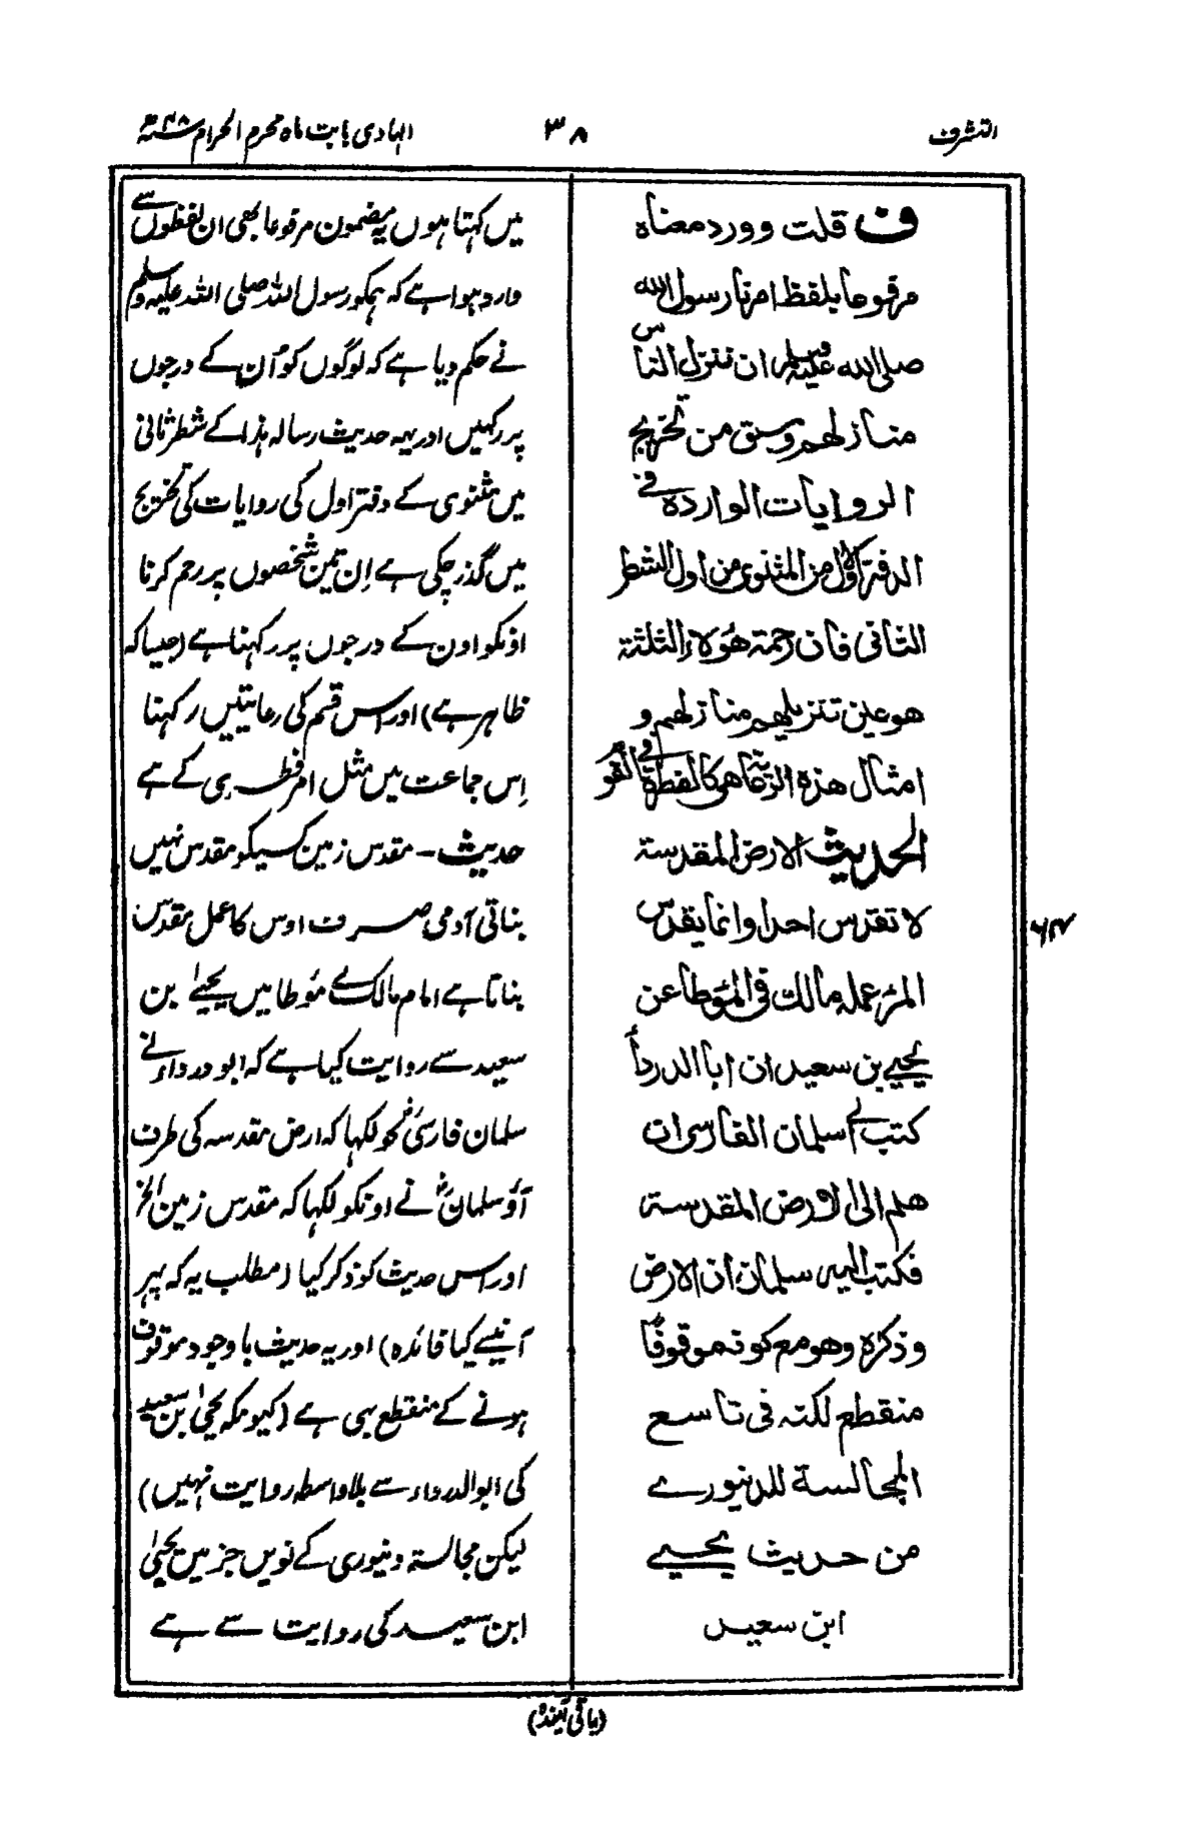 التشرف
۳۸
الہادی بابت ماہ محرم الحرام ۱۳۴۸ھ
ف قلت و ورد معناه
مرفوعا بلفظ امرنا رسول الله
صلی الله علیہ وسلم ان ننزل الناس
منازلهم وسبق من تخریج
الروایات الواردة فی
الدفتر الاول من المثنوی من اول الشطر
الثانی فان رحمة هؤلاء الثلثة
هو عین تنزیلهم منازلهم و
امثال هذه الرعایة هی کالفطرة فی القوم
الحدیث الارض المقدسة
لا تقدس احدا وانما یقدس
المرء عمله مالک فی المؤطا عن
یحیے بن سعید ان ابا الدرداء
کتب الے سلمان الفارسی ان
هلم الی الارض المقدسة
فکتب الیه سلمان ان الارض
وذکره وهو مع کونه موقوفاً
منقطع لکنه فی تاسع
المجالسة للدینورے
من حدیث یحیے
ابن سعید
میں کہتا ہوں یہ مضمون مرفوعا بھی ان لفظوں سے
وارد ہوا ہے کہ ہمکو رسول اللہ صلی اللہ علیہ وسلم
نے حکم دیا ہے کہ لوگوں کو اُن کے درجوں
پر رکہیں اور یہ حدیث رسالہ ہذا کے شطر ثانی
میں مثنوی کے دفتر اول کی روایات کی تخریج
میں گذر چکی ہے اِن تین شخصوں پر رحم کرنا
اونکو اون کے درجوں پر رکہنا ہے (جیسا کہ
ظاہر ہے) اور اس قسم کی رعایتیں رکہنا
اِس جماعت میں مثل امر فطری کے ہے
حدیث - مقدس زمین کسیکو مقدس نہیں
بناتی آدمی صرف اوس کا عمل مقدس
بناتا ہے امام مالک نے مؤطا میں یحیےٰ بن
سعید سے روایت کیا ہے کہ ابو درداء نے
سلمان فارسیؓ کو لکہا کہ ارض مقدسہ کی طرف
آؤ سلمانؓ نے اونکو لکہا کہ مقدس زمین الخ
اور اس حدیث کو ذکر کیا (مطلب یہ کہ پہر
آنیسے کیا فائدہ) اور یہ حدیث باوجود موقوف
ہونے کے منقطع بہی ہے (کیونکہ یحیٰی بن سعید
کی ابوالدرداء سے بلاواسطہ روایت نہیں)
لیکن مجالستہ دنیوری کے نویں جز میں یحیٰی
ابن سعید کی روایت سے ہے
(باقی آیندہ)